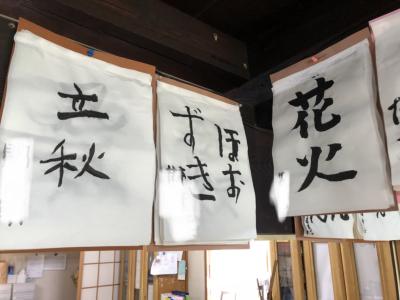 花火
ほお
ずき
立秋